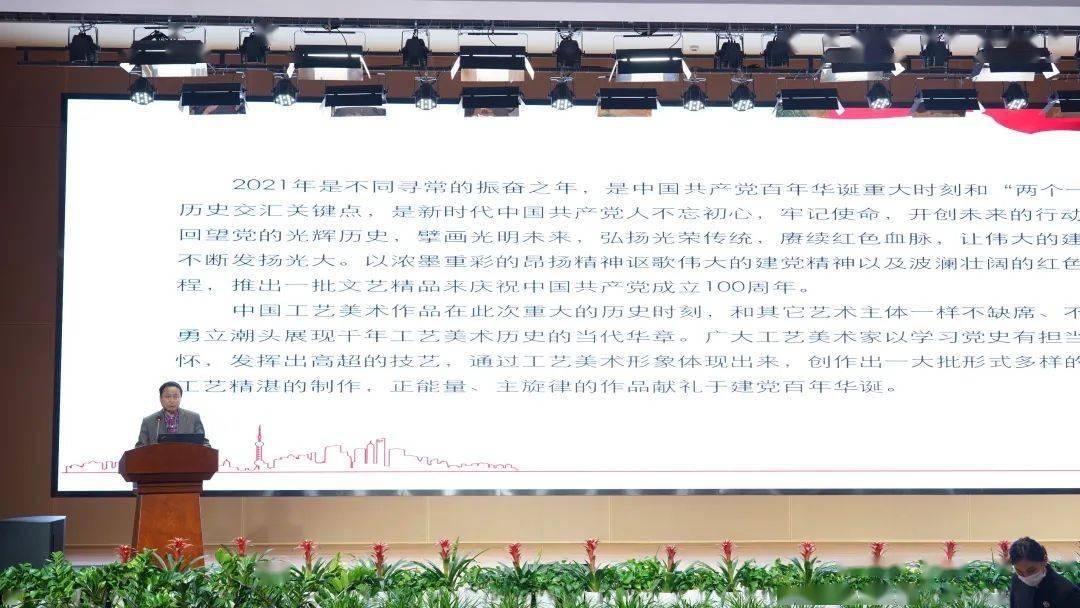 2021年是不同寻常的振奋之年，是中国共产党百年华诞重大时刻和“两个一
历史交汇关键点，是新时代中国共产党人不忘初心，牢记使命，开创未来的行动
回望党的光辉历史，擘画光明未来，弘扬光荣传统，赓续红色血脉，让伟大的建
不断发扬光大。以浓墨重彩的昂扬精神讴歌伟大的建党精神以及波澜壮阔的红色
程，推出一批文艺精品来庆祝中国共产党成立100周年。
中国工艺美术作品在此次重大的历史时刻，和其它艺术主体一样不缺席、不
勇立潮头展现千年工艺美术历史的当代华章。广大工艺美术家以学习党史有担当
怀，发挥出高超的技艺，通过工艺美术形象体现出来，创作出一大批形式多样的
工艺精湛的制作，正能量、主旋律的作品献礼于建党百年华诞。